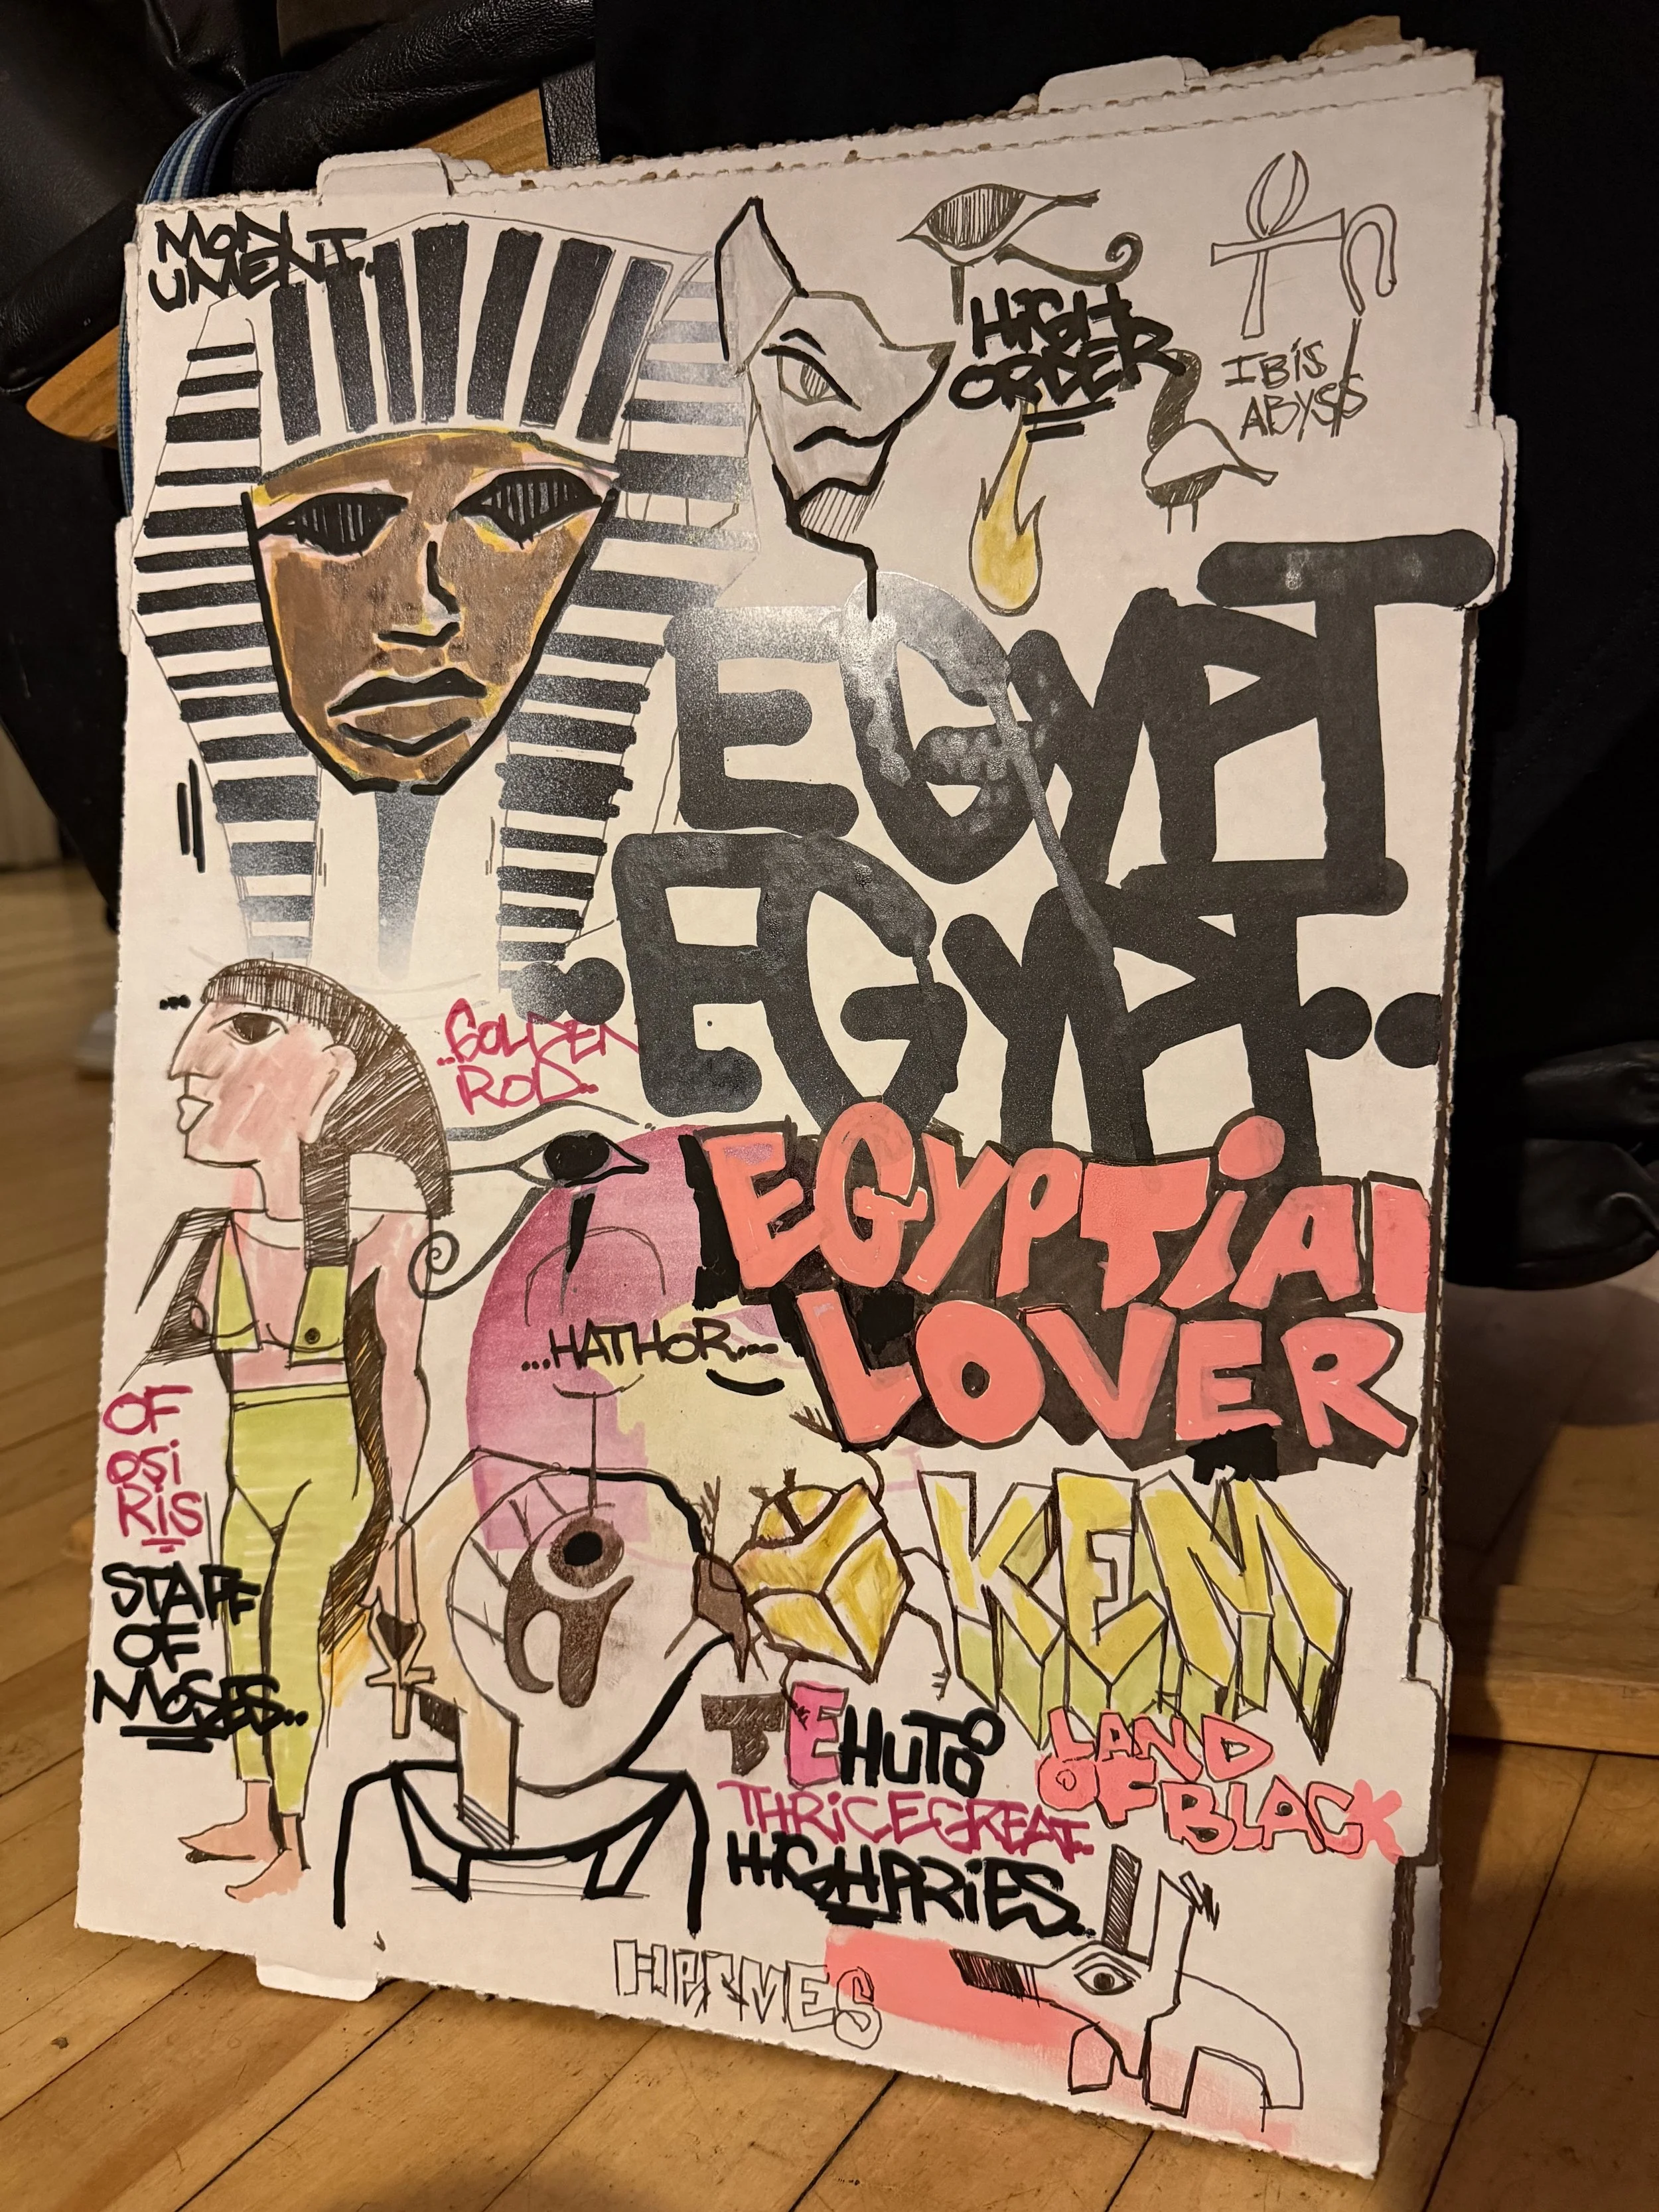 MON
UMENT.
HIGH
ORDER
IBiS
ABYSS
EGYPT
EGYPT..
..GOLDEN
ROD..
EGYPTiAN
LOVER
...HATHOR...
OF
OSi
RiS
STAFF
OF
MOSES..
KEM
TEHUTO
LAND
OF BLACK
THRiCEGREAT..
HIGHPRiES..
HERMES